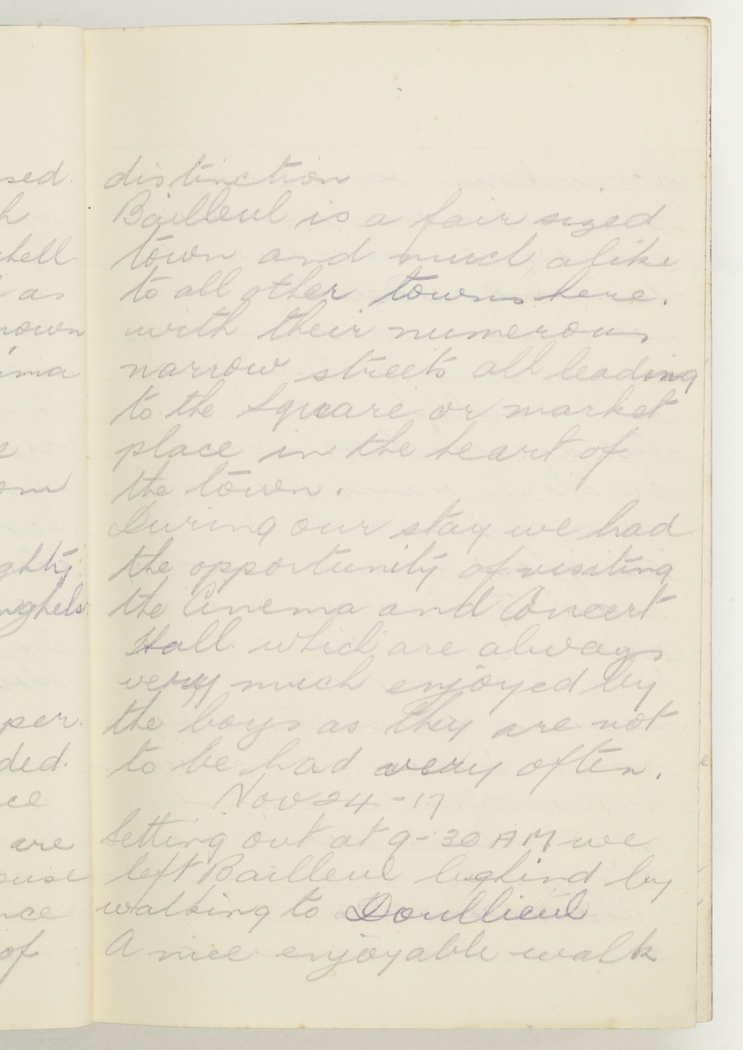 sed.
h
shell
as
nown
ima
e
om
ghty
nghels
per.
ded.
ce
are
ouse
nce
of
distinction
Bailleul is a fair sized
town and much alike
to all other towns here.
with their numerous
narrow streets all leading
to the Square or market
place in the heart of
the town.
During our stay we had
the opportunity of visiting
the Cinema and Concert
Hall which are always
very much enjoyed by
the boys as they are not
to be had very often.
Nov 24-17
Setting out at 9-30 AM we
left Bailleul behind by
walking to Doullieul
A nice enjoyable walk